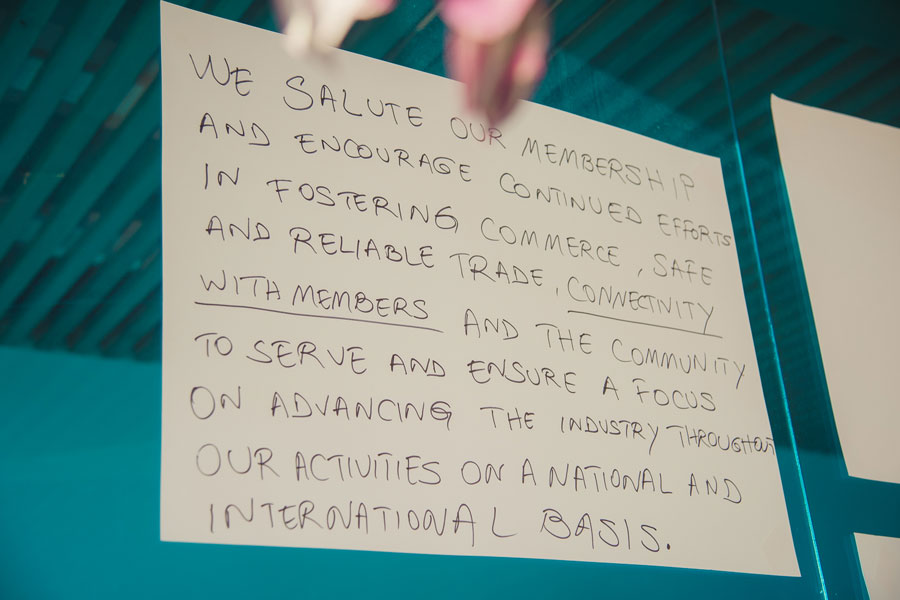 WE SALUTE OUR MEMBERSHIP
AND ENCOURAGE CONTINUED EFFORTS
IN FOSTERING COMMERCE, SAFE
AND RELIABLE TRADE, CONNECTIVITY
WITH MEMBERS AND THE COMMUNITY
TO SERVE AND ENSURE A FOCUS
ON ADVANCING THE INDUSTRY THROUGHOUT
OUR ACTIVITIES ON A NATIONAL AND
INTERNATIONAL BASIS.